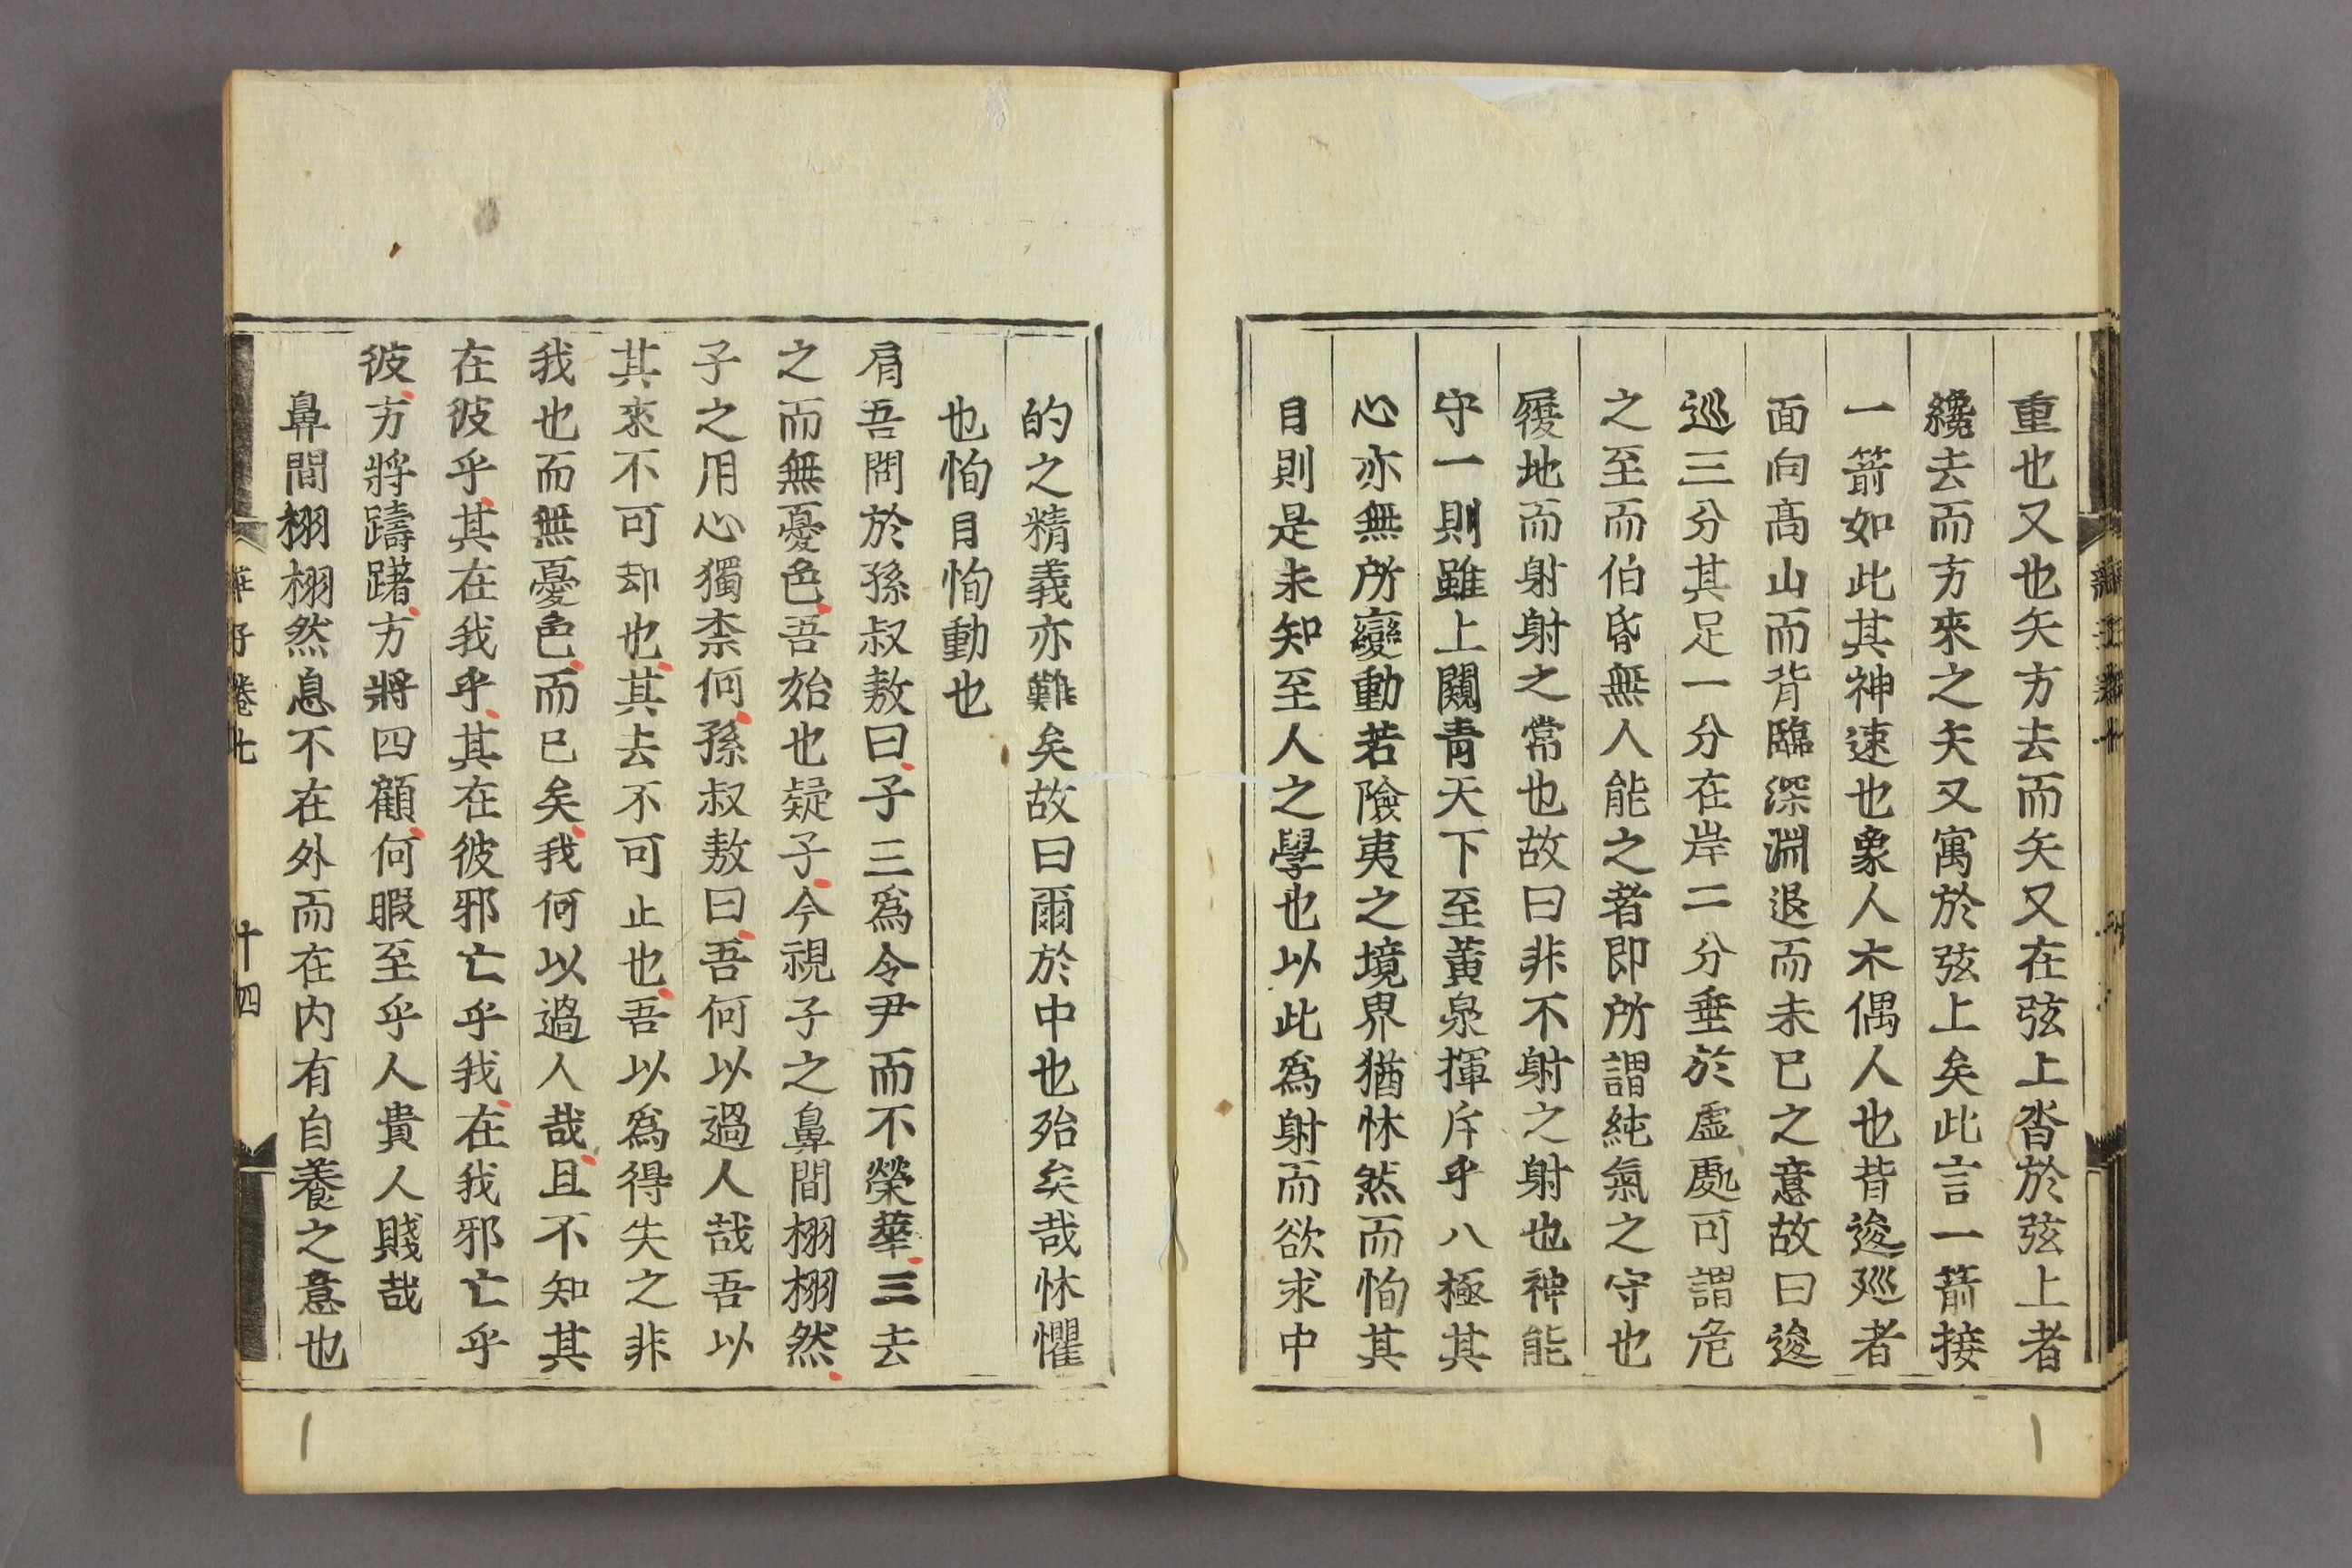 重也又也矢方去而矢又在弦上沓於弦上者
纔去而方來之矢又寓於弦上矣此言一箭接
一箭如此其神速也象人木偶人也背逡廵者
面向髙山而背臨深淵退而未已之意故曰逡
巡三分其足一分在岸二分垂於虛處可謂危
之至而伯昏無人能之者即所謂純氣之守也
履地而射射之常也故曰非不射之射也神能
守一則雖上闚靑天下至黃泉揮斥乎八極其
心亦無所變動若險夷之境界猶怵然而恂其
目則是未知至人之學也以此爲射而欲求中
的之精義亦難矣故曰爾於中也殆矣哉怵懼
也恂目恂動也
肩吾問於孫叔敖曰子三爲令尹而不榮華三去
之而無憂色吾始也疑子今視子之鼻間栩栩然
子之用心獨柰何孫叔敖曰吾何以過人哉吾以
其來不可却也其去不可止也吾以爲得失之非
我也而無憂色而已矣我何以過人哉且不知其
在彼乎其在我乎其在彼邪亡乎我在我邪亡乎
彼方將躊躇方將四顧何暇至乎人貴人賤哉
鼻間栩栩然息不在外而在内有自養之意也
莊子卷七
十四